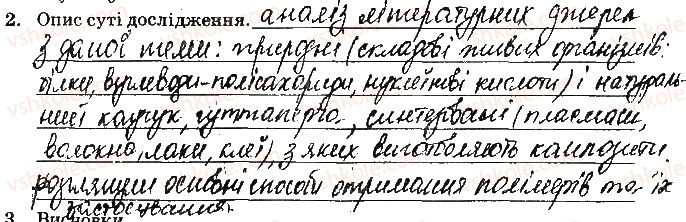 2. Опис суті дослідження. аналіз літературних джерел
з даної теми: природні (складові живих організмів:
білки, вуглеводи-полісахариди, нуклеїнові кислоти) і натураль-
ний каучук, гуттаперча, синтервані (пластмаси,
волокна, лаки, клеї), з яких виготовляють композити.
розглянули основні способи отримання полімерів та їх
застосування.
3. Висновки